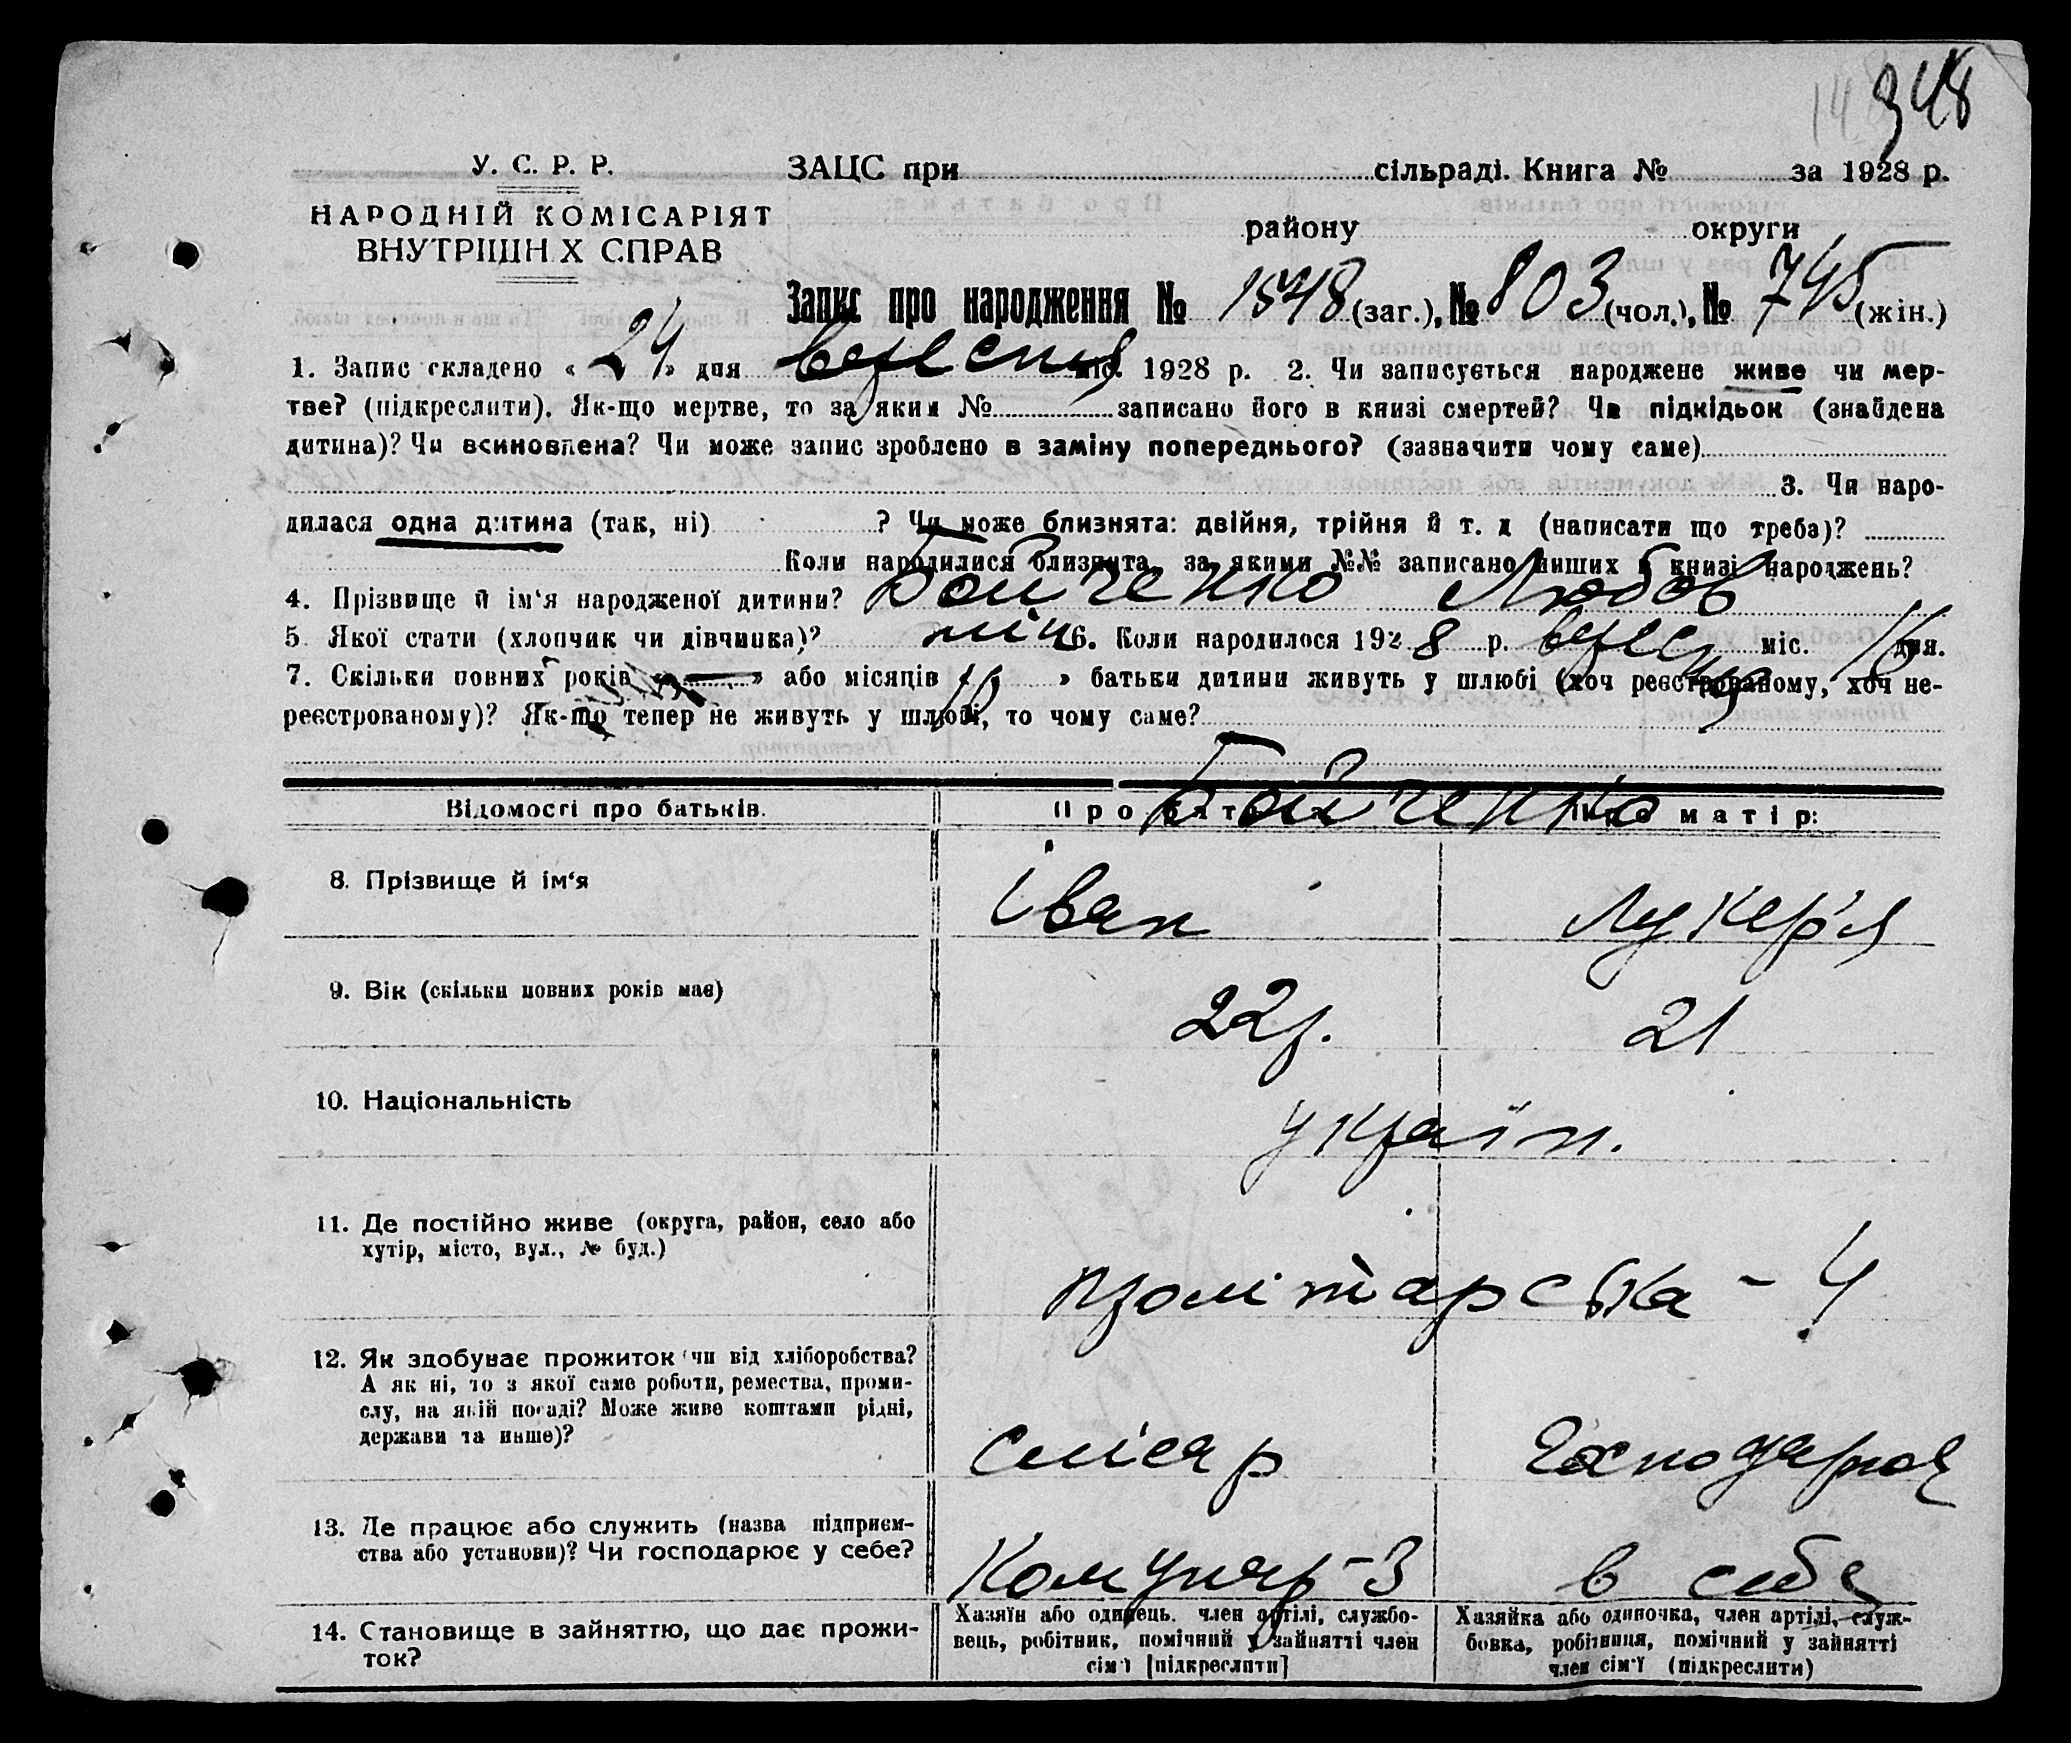 348
У. С. Р. Р. ЗАЦС при сільраді. Книга № за 1928 р.
НАРОДНІЙ КОМІСАРІЯТ
району округи
ВНУТРІШН Х СПРАВ
Запис про народження № 1548 (заг.), № 803 (чол.), № 745 (жін.)
1. Запис складено « 24 » дня вересня міс. 1928 р. 2. Чи записується народжене живе чи мер-
тве? (підкреслити). Як-що мертве, то за яким № записано його в книзі смертей? Чи підкідьок (знайдена
дитина)? Чи всиновлена? Чи може запис зроблено в заміну попереднього? (зазначити чому саме)
3. Чи наро-
дилася одна дитина (так, ні) ? Чи може близнята: двійня, трійня й т. д (написати що треба)?
Коли народилися близнята, за якими №№ записано инших в книзі народжень?
4. Прізвище й ім‘я народженої дитини? Бойченко Любов
5. Якої стати (хлопчик чи дівчинка)? жін 6. Коли народилося 1928 р. верес міс. 16 дня.
7. Скільки повних років « » або місяців « 10 » батьки дитини живуть у шлюбі (хоч реєстрованому, хоч не-
реєстрованому)? Як-що тепер не живуть у шлюбі, то чому саме?
Бойченко
Відомості про батьків. Про батька Про матір:
8. Прізвище й ім‘я Іван Лукер'я
9. Вік (скільки повних років має) 22р. 21
10. Національність україн.
11. Де постійно живе (округа, район, село або
хутір, місто, вул., № буд.)
Пролітарська - 4
12. Як здобуває прожиток (чи від хліборобства?
А як ні, то з якої саме роботи, ремества, проми-
слу, на якій посаді? Може живе коштами рідні,
держави та инше)?
Слісар Господарює
13. Де працює або служить (назва підприєм-
ства або установи)? Чи господарює у себе?
Комунар-3 в себе
14. Становище в зайняттю, що дає прожи-
ток?
Хазяїн або одинець. член артілі, службо-
вець, робітник, помічний у зайнятті член
сім'ї [підкреслити]
Хазяйка або одиночка, член артілі, служ-
бовка, робітниця, помічний у зайнятті
член сім'ї (підкреслити)